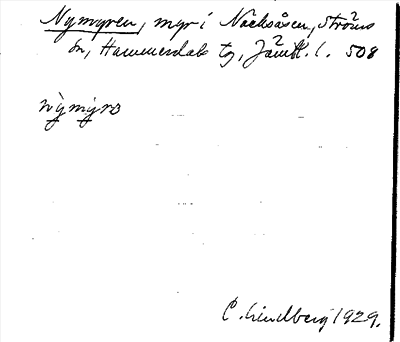 Nymyren, myr i Nacksåsen, Ströms
sn, Hammerdals tg, Jämtl. l. 508
nỳmýrɒ
C. Lindberg 1929.